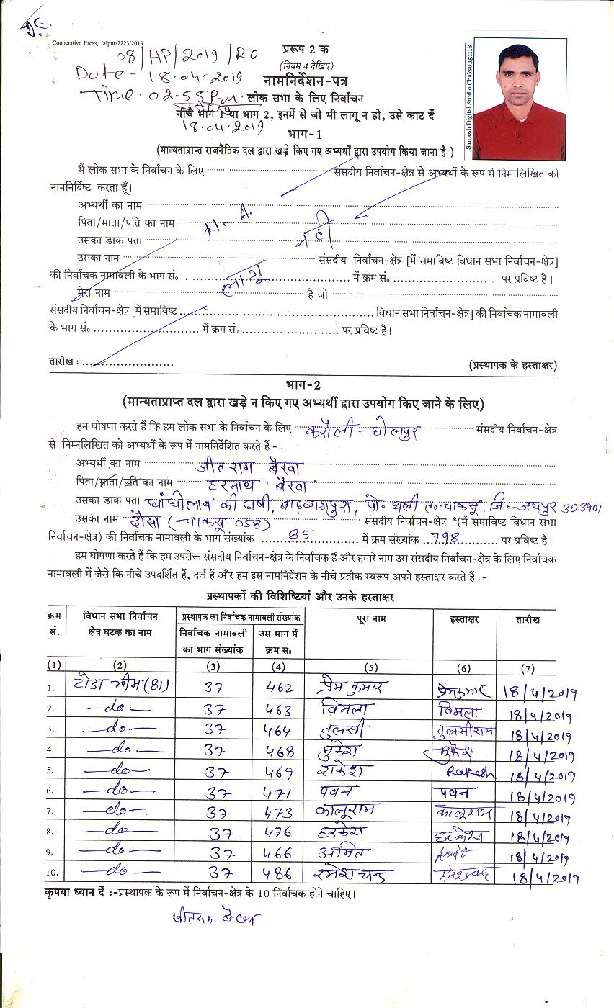 08/HP/2019/RO
प्ररूप 2 क
(नियम 4 देखिए)
Date - 18.04.2019
नामनिर्देशन-पत्र
Time - 02.55 Pm लोक सभा के लिए निर्वाचन
नीचे भाग 1 या भाग 2, इनमें से जो भी लागू न हो, उसे काट दें
18.04.2019
भाग-1
(मान्यताप्राप्त राजनैतिक दल द्वारा खड़े किए गए अभ्यर्थी द्वारा उपयोग किया जाना है )
मैं लोक सभा के निर्वाचन के लिए संसदीय निर्वाचन-क्षेत्र से अभ्यर्थी के रूप में निम्नलिखित को
नामनिर्दिष्ट करता हूँ।
अभ्यर्थी का नाम
पिता/माता/पति का नाम N.A.
उसका डाक पता नहीं
उसका नाम संसदीय निर्वाचन-क्षेत्र [में समाविष्ट विधान सभा निर्वाचन-क्षेत्र]
की निर्वाचक नामावली के भाग सं० में क्रम सं० पर प्रविष्ट है।
मेरा नाम लागू है जो
संसदीय निर्वाचन-क्षेत्र [में समाविष्ट विधान सभा निर्वाचन-क्षेत्र] की निर्वाचक नामावली
के भाग सं० में क्रम सं० पर प्रविष्ट है।
तारीख : (प्रस्थापक के हस्ताक्षर)
भाग-2
(मान्यताप्राप्त दल द्वारा खड़े न किए गए अभ्यर्थी द्वारा उपयोग किए जाने के लिए)
हम घोषणा करते हैं कि हम लोक सभा के निर्वाचन के लिए करौली - धौलपुर संसदीय निर्वाचन-क्षेत्र
से निम्नलिखित को अभ्यर्थी के रूप में नामनिर्देशित करते हैं -
अभ्यर्थी का नाम जीतराम बैरवा
पिता/माता/पति का नाम हरनाथ बैरवा
उसका डाक पता की पो० त० चाकसू, जि० - जयपुर 303901
उसका नाम दौसा (चाकसू संसदीय निर्वाचन-क्षेत्र *(में समाविष्ट विधान सभा
निर्वाचन-क्षेत्र) की निर्वाचक नामावली के भाग संख्यांक 85 में क्रम संख्यांक 798 पर प्रविष्ट है
हम घोषणा करते हैं कि हम उपरोक्त संसदीय निर्वाचन-क्षेत्र के निर्वाचक हैं और हमारे नाम उस संसदीय निर्वाचन-क्षेत्र के लिए निर्वाचक
नामावली में जैसे कि नीचे उपदर्शित हैं, दर्ज हैं और हम इस नामनिर्देशन के नीचे प्रतीक स्वरूप अपने हस्ताक्षर करते हैं :-
प्रस्थापकों की विशिष्टियाँ और उनके हस्ताक्षर
क्रम सं. विधान सभा निर्वाचन क्षेत्र घटक का नाम प्रस्थापक का निर्वाचक नामावली संख्यांक पूरा नाम हस्ताक्षर तारीख
निर्वाचक नामावली का भाग संख्यांक उस भाग में क्रम सं०
(1) (2) (3) (4) (5) (6) (7)
1. टोडा भीम(81) 37 462 प्रेम कुमार प्रेमकुमार 18/4/2019
2. -do- 37 463 विमला विमला 18/4/2019
3. -do- 37 464 तुलसी तुलसीराम 18/4/2019
4. -do- 37 468 मुकेश मुकेश 18/4/2019
5. -do- 37 469 राकेश Rakesh 18/4/2019
6. -do- 37 471 पवन पवन 18/4/2019
7. -do- 37 473 कालूराम कालूराम 18/4/2019
8. -do- 37 476 हरकेश हरकेश 18/4/2019
9. -do- 37 466 अमित Amit 18/4/2019
10. -do- 37 486 रमेश चन्द रमेशचन्द 18/4/2019
कृपया ध्यान दें :-प्रस्थापक के रूप में निर्वाचन-क्षेत्र के 10 निर्वाचक होने चाहिए।
जीतराम बैरवा